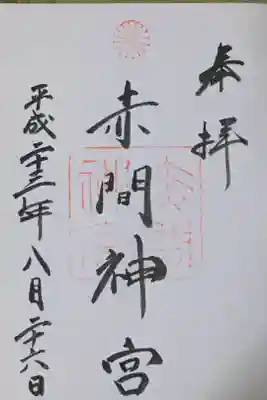 奉拝
赤間神宮
平成二十三年八月二十六日